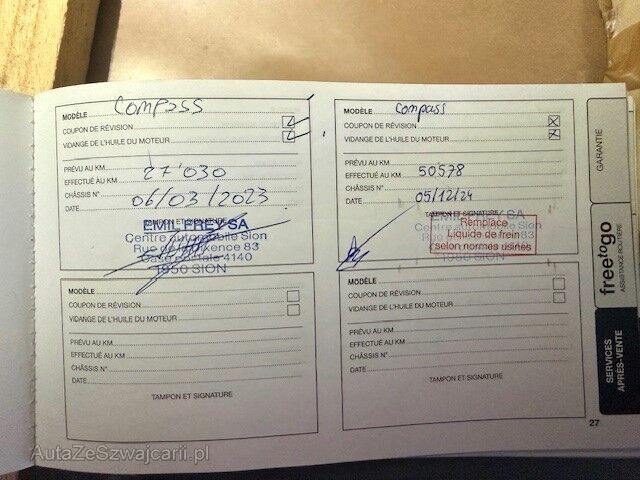 MODÈLE Compass
COUPON DE RÉVISION
VIDANGE DE L'HUILE DU MOTEUR
PRÉVU AU KM
EFFECTUÉ AU KM 27'030
CHÂSSIS N°
DATE 06/03/2023
TAMPON ET SIGNATURE
EMIL FREY SA
Centre automobile Sion
Rue de la Dixence 83
Case postale 4140
1950 SION
MODÈLE
COUPON DE RÉVISION
VIDANGE DE L'HUILE DU MOTEUR
PRÉVU AU KM
EFFECTUÉ AU KM
CHÂSSIS N°
DATE
TAMPON ET SIGNATURE
MODÈLE Compass
COUPON DE RÉVISION
VIDANGE DE L'HUILE DU MOTEUR
PRÉVU AU KM
EFFECTUÉ AU KM 50578
CHÂSSIS N°
DATE 05/12/24
TAMPON ET SIGNATURE
EMIL FREY SA
Centre automobile Sion
Rue de la Dixence 83
1950 SION
Remplacé
Liquide de frein
selon normes usines
MODÈLE
COUPON DE RÉVISION
VIDANGE DE L'HUILE DU MOTEUR
PRÉVU AU KM
EFFECTUÉ AU KM
CHÂSSIS N°
DATE
TAMPON ET SIGNATURE
GARANTIE
freetogo
ASSISTANCE ROUTIÈRE
SERVICES
APRÈS-VENTE
27
AutaZeSzwajcarii.pl